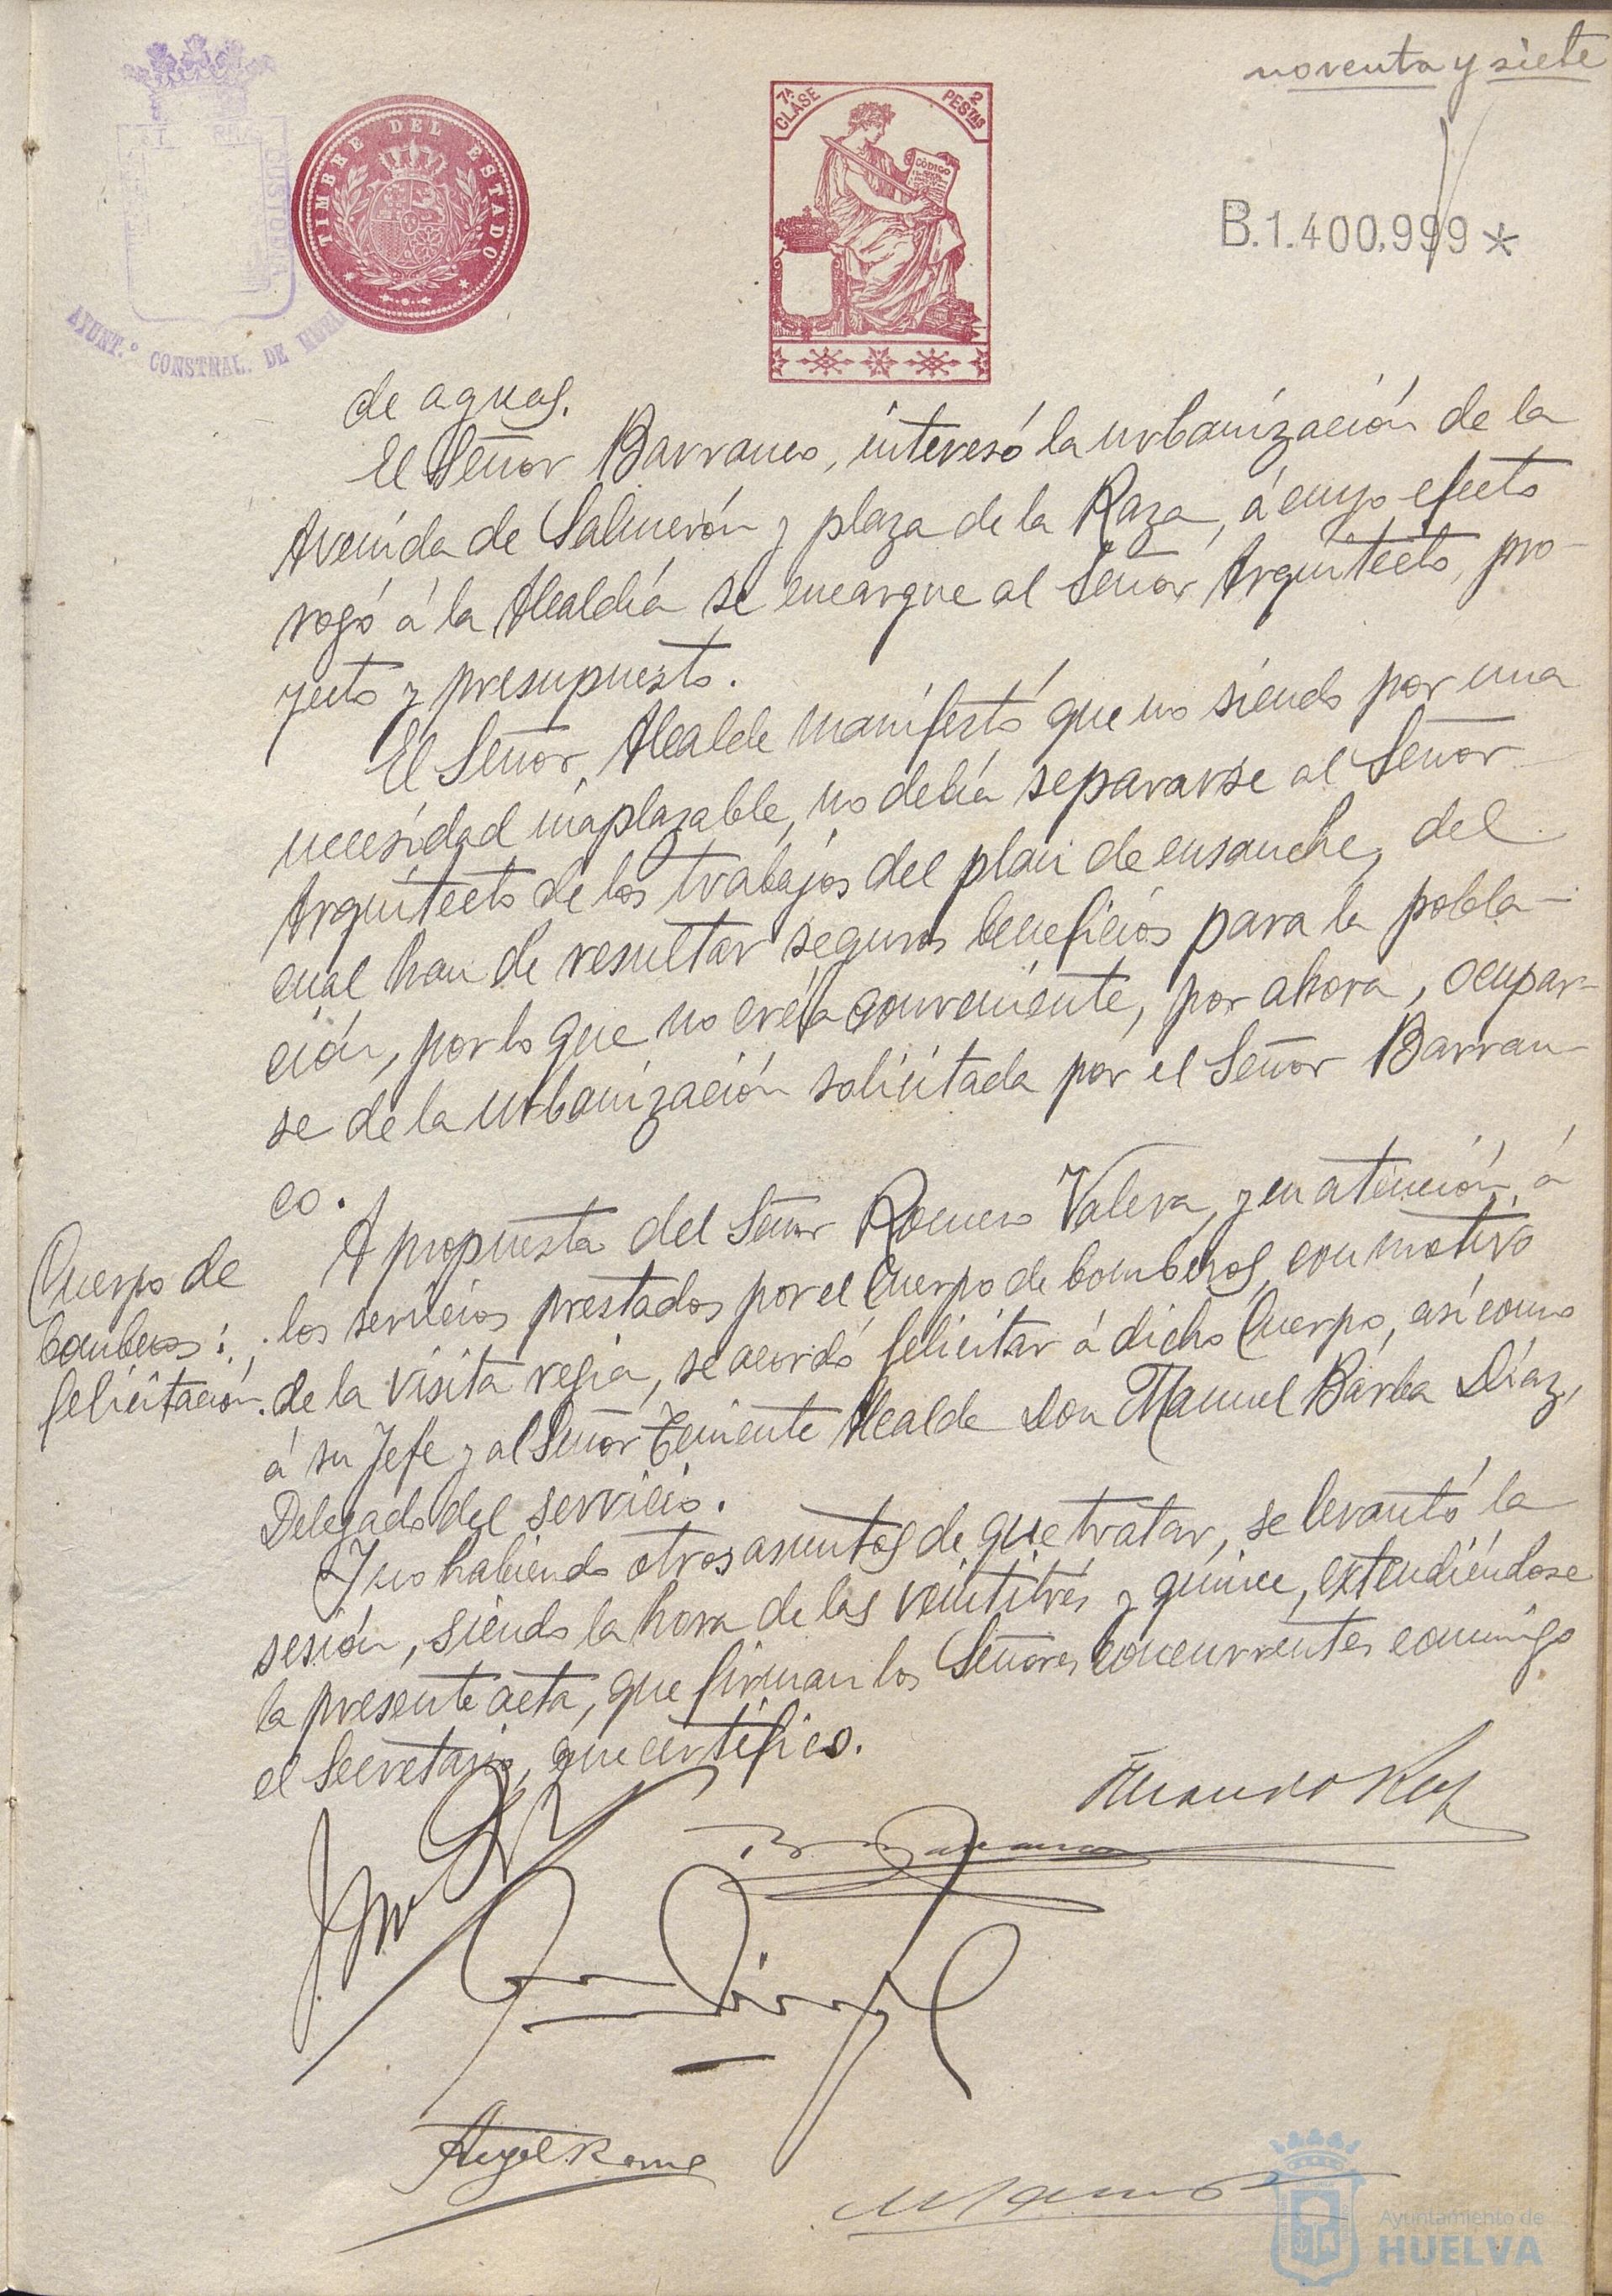 noventa y siete
TIMBRE DEL ESTADO
7ª CLASE
2 PESTAS
CÓDIGO
B.1.400.999 *
AYUNT.º CONSTNAL. DE HUEL
de aguas.
El Señor Barranco, interesó la urbanización de la
Avenida de Salmerón y plaza de la Raza, á cuyo efecto
rogó á la Alcaldía se encargue al Señor Arquitecto, pro-
yecto y presupuesto.
El Señor Alcalde manifestó que no siendo por una
necesidad inaplazable, no debía separarse al Señor
Arquitecto de los trabajos del plan de ensanche, del
cual han de resultar seguros beneficios para la pobla-
ción, por lo que no creía conveniente, por ahora, ocupar-
se de la urbanización solicitada por el Señor Barran-
co.
Cuerpo de
bomberos:
felicitación.
A propuesta del Señor Romero Valera, y en atención á
los servicios prestados por el Cuerpo de bomberos, con motivo
de la visita regia, se acordó felicitar á dicho Cuerpo, así como
á su Jefe y al Señor Teniente Alcalde Don Manuel Barba Díaz,
Delegado del servicio.
Y no habiendo otros asuntos de que tratar, se levantó la
sesión, siendo la hora de las veintitrés y quince, extendiéndose
la presente acta, que firman los Señores concurrentes conmigo
el Secretario, que certifico.
Ayuntamiento de
HUELVA